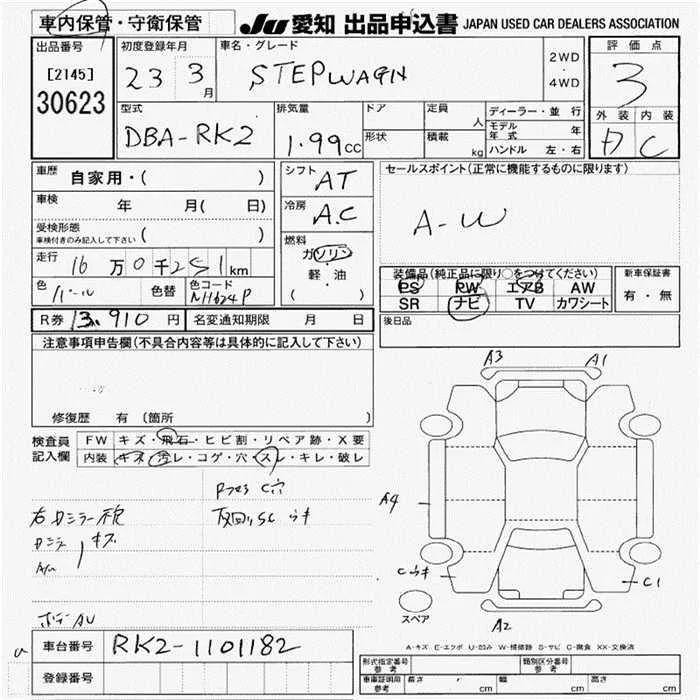 車内保管・守衛保管
JU 愛知 出品申込書 JAPAN USED CAR DEALERS ASSOCIATION
出品番号 [2145] 30623
初度登録年月 23 3月
車名・グレード STEPWAGN
2WD ・ 4WD
評価点 3
外装 内装
C
型式 DBA-RK2
排気量 1.99cc
ドア
形状
定員 人
積載 kg
ディーラー・並行
モデル年式 年
ハンドル 左・右
車歴 自家用・( )
車検 年 月( 日)
受検形態
車検付きのみ記入して下さい ( )
走行 16万0千251km
色 パール 色替 色コード NH624P
シフト AT
冷房 A.C
燃料
ガソリン
軽・油
( )
セールスポイント(正常に機能するものに限ります)
A-W
装備品(純正品に限り○をつけてください)
PS PW エアB AW
SR ナビ TV カワシート
新車保証書
有・無
R券 13,910円 名変通知期限 月 日
後日品
注意事項申告欄(不具合内容等は具体的に記入して下さい)
修復歴 有(箇所
検査員記入欄
FW キズ・飛石・ヒビ割・リペア跡・X要
内装 キズ・汚レ・コゲ・穴・スレ・キレ・破レ
A3 A1
A4
C1
A2
スペア
車台番号 RK2-1101182
登録番号
A-キズ E-エクボ U-凹み W-補修跡 S-サビ C-腐食 XX-交換済
形式指定番号 参考
類別区分番号 参考
車庫証明用 参考 長さ cm 幅 cm 高さ cm